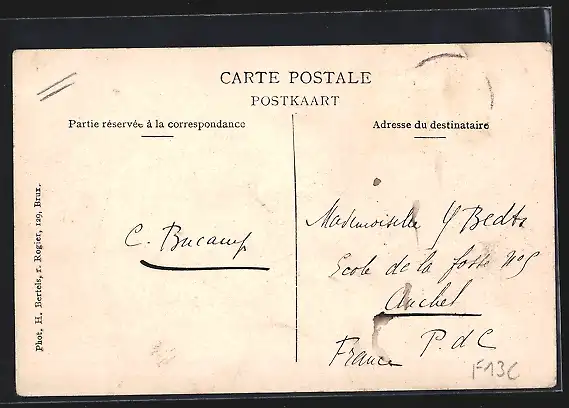 CARTE POSTALE
POSTKAART
Partie réservée à la correspondance
Adresse du destinataire
Phot. H. Bertels, r. Rogier, 129, Brux.
C. Bucamp
Mademoiselle Y Bedts
Ecole de la fosse n° 5
Auchel
P. d C
France
F13C